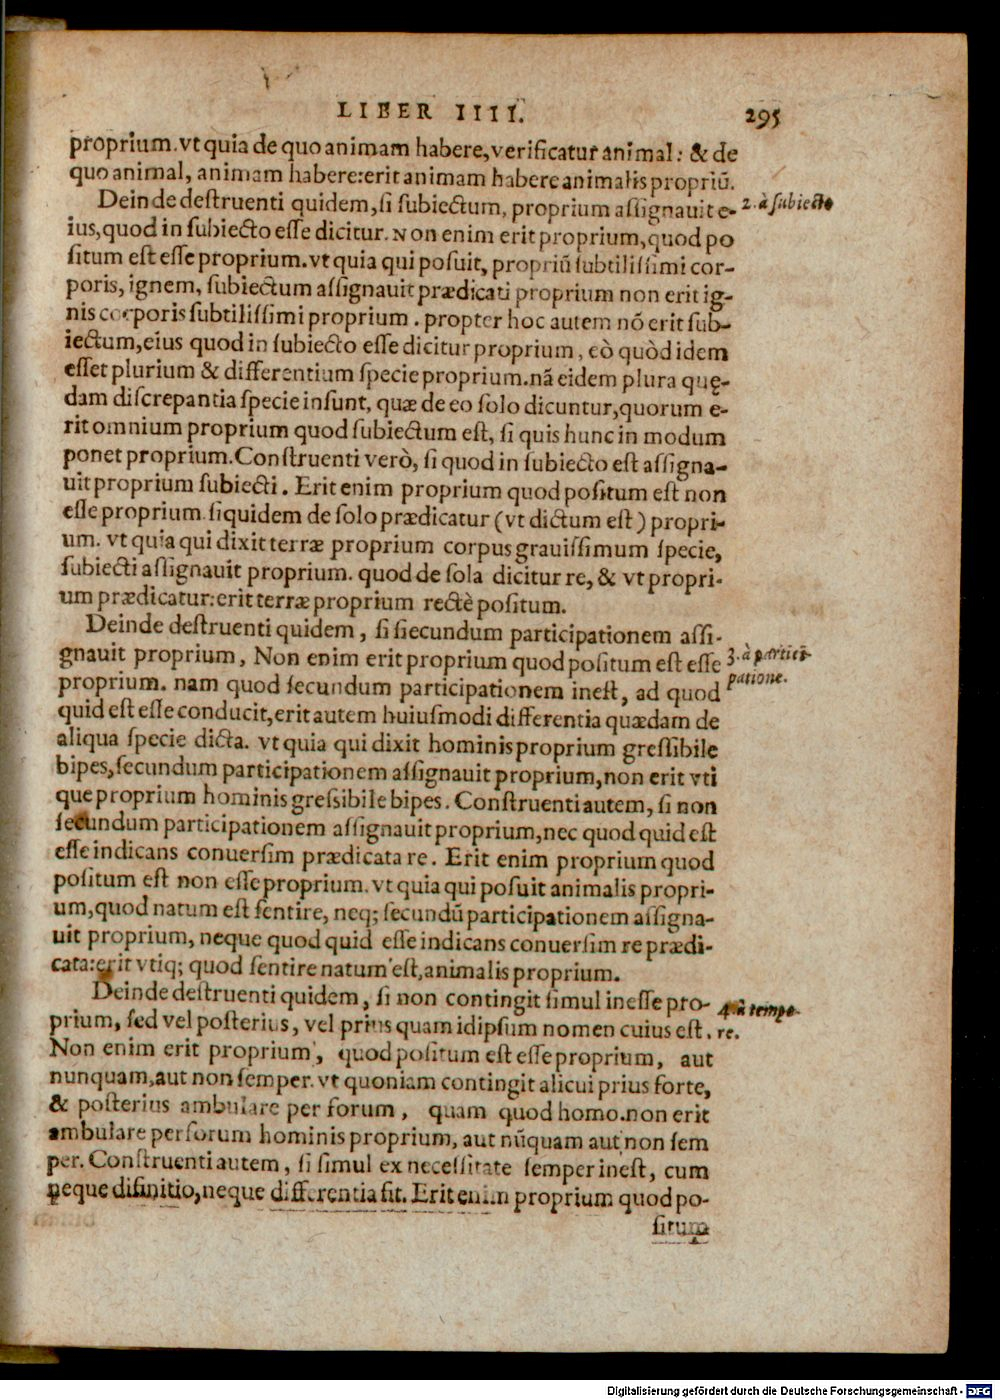 LIBER IIII. 295
proprium. vt quia de quo animam habere, verificatur animal: & de
quo animal, animam habere: erit animam habere animalis propriũ.
Deinde destruenti quidem, si subiectum, proprium assignauit e- 2. à subiecto
ius, quod in subiecto esse dicitur. Non enim erit proprium, quod po
situm est esse proprium. vt quia qui posuit, propriũ subtilissimi cor-
poris, ignem, subiectum assignauit prædicati proprium non erit ig-
nis corporis subtilissimi proprium. propter hoc autem nõ erit sub-
iectum, eius quod in subiecto esse dicitur proprium, eò quòd idem
esset plurium & differentium specie proprium. nã eidem plura quę-
dam discrepantia specie insunt, quæ de eo solo dicuntur, quorum e-
rit omnium proprium quod subiectum est, si quis hunc in modum
ponet proprium. Construenti verò, si quod in subiecto est assigna-
uit proprium subiecti. Erit enim proprium quod positum est non
esse proprium. siquidem de solo prædicatur (vt dictum est) propri-
um. vt quia qui dixit terræ proprium corpus grauissimum specie,
subiecti assignauit proprium. quod de sola dicitur re, & vt propri-
um prædicatur: erit terræ proprium rectè positum.
Deinde destruenti quidem, si siecundum participationem assi-
gnauit proprium, Non enim erit proprium quod positum est esse 3. à partici-
proprium. nam quod secundum participationem inest, ad quod patione.
quid est esse conducit, erit autem huiusmodi differentia quædam de
aliqua specie dicta. vt quia qui dixit hominis proprium gressibile
bipes, secundum participationem assignauit proprium, non erit vti
que proprium hominis gressibile bipes. Construenti autem, si non
secundum participationem assignauit proprium, nec quod quid est
esse indicans conuersim prædicata re. Erit enim proprium quod
positum est non esse proprium. vt quia qui posuit animalis propri-
um, quod natum est sentire, neq; secundũ participationem assigna-
uit proprium, neque quod quid esse indicans conuersim re prædi-
cata: erit vtiq; quod sentire natum est, animalis proprium.
Deinde destruenti quidem, si non contingit simul inesse pro- 4. à tempo-
prium, sed vel posterius, vel prius quam idipsum nomen cuius est. re.
Non enim erit proprium, quod positum est esse proprium, aut
nunquam, aut non semper. vt quoniam contingit alicui prius forte,
& posterius ambulare per forum, quam quod homo. non erit
ambulare per forum hominis proprium, aut nũquam aut non sem
per. Construenti autem, si simul ex necessitate semper inest, cum
neque difinitio, neque differentia sit. Erit enim proprium quod po-
situm
Digitalisierung gefördert durch die Deutsche Forschungsgemeinschaft - DFG